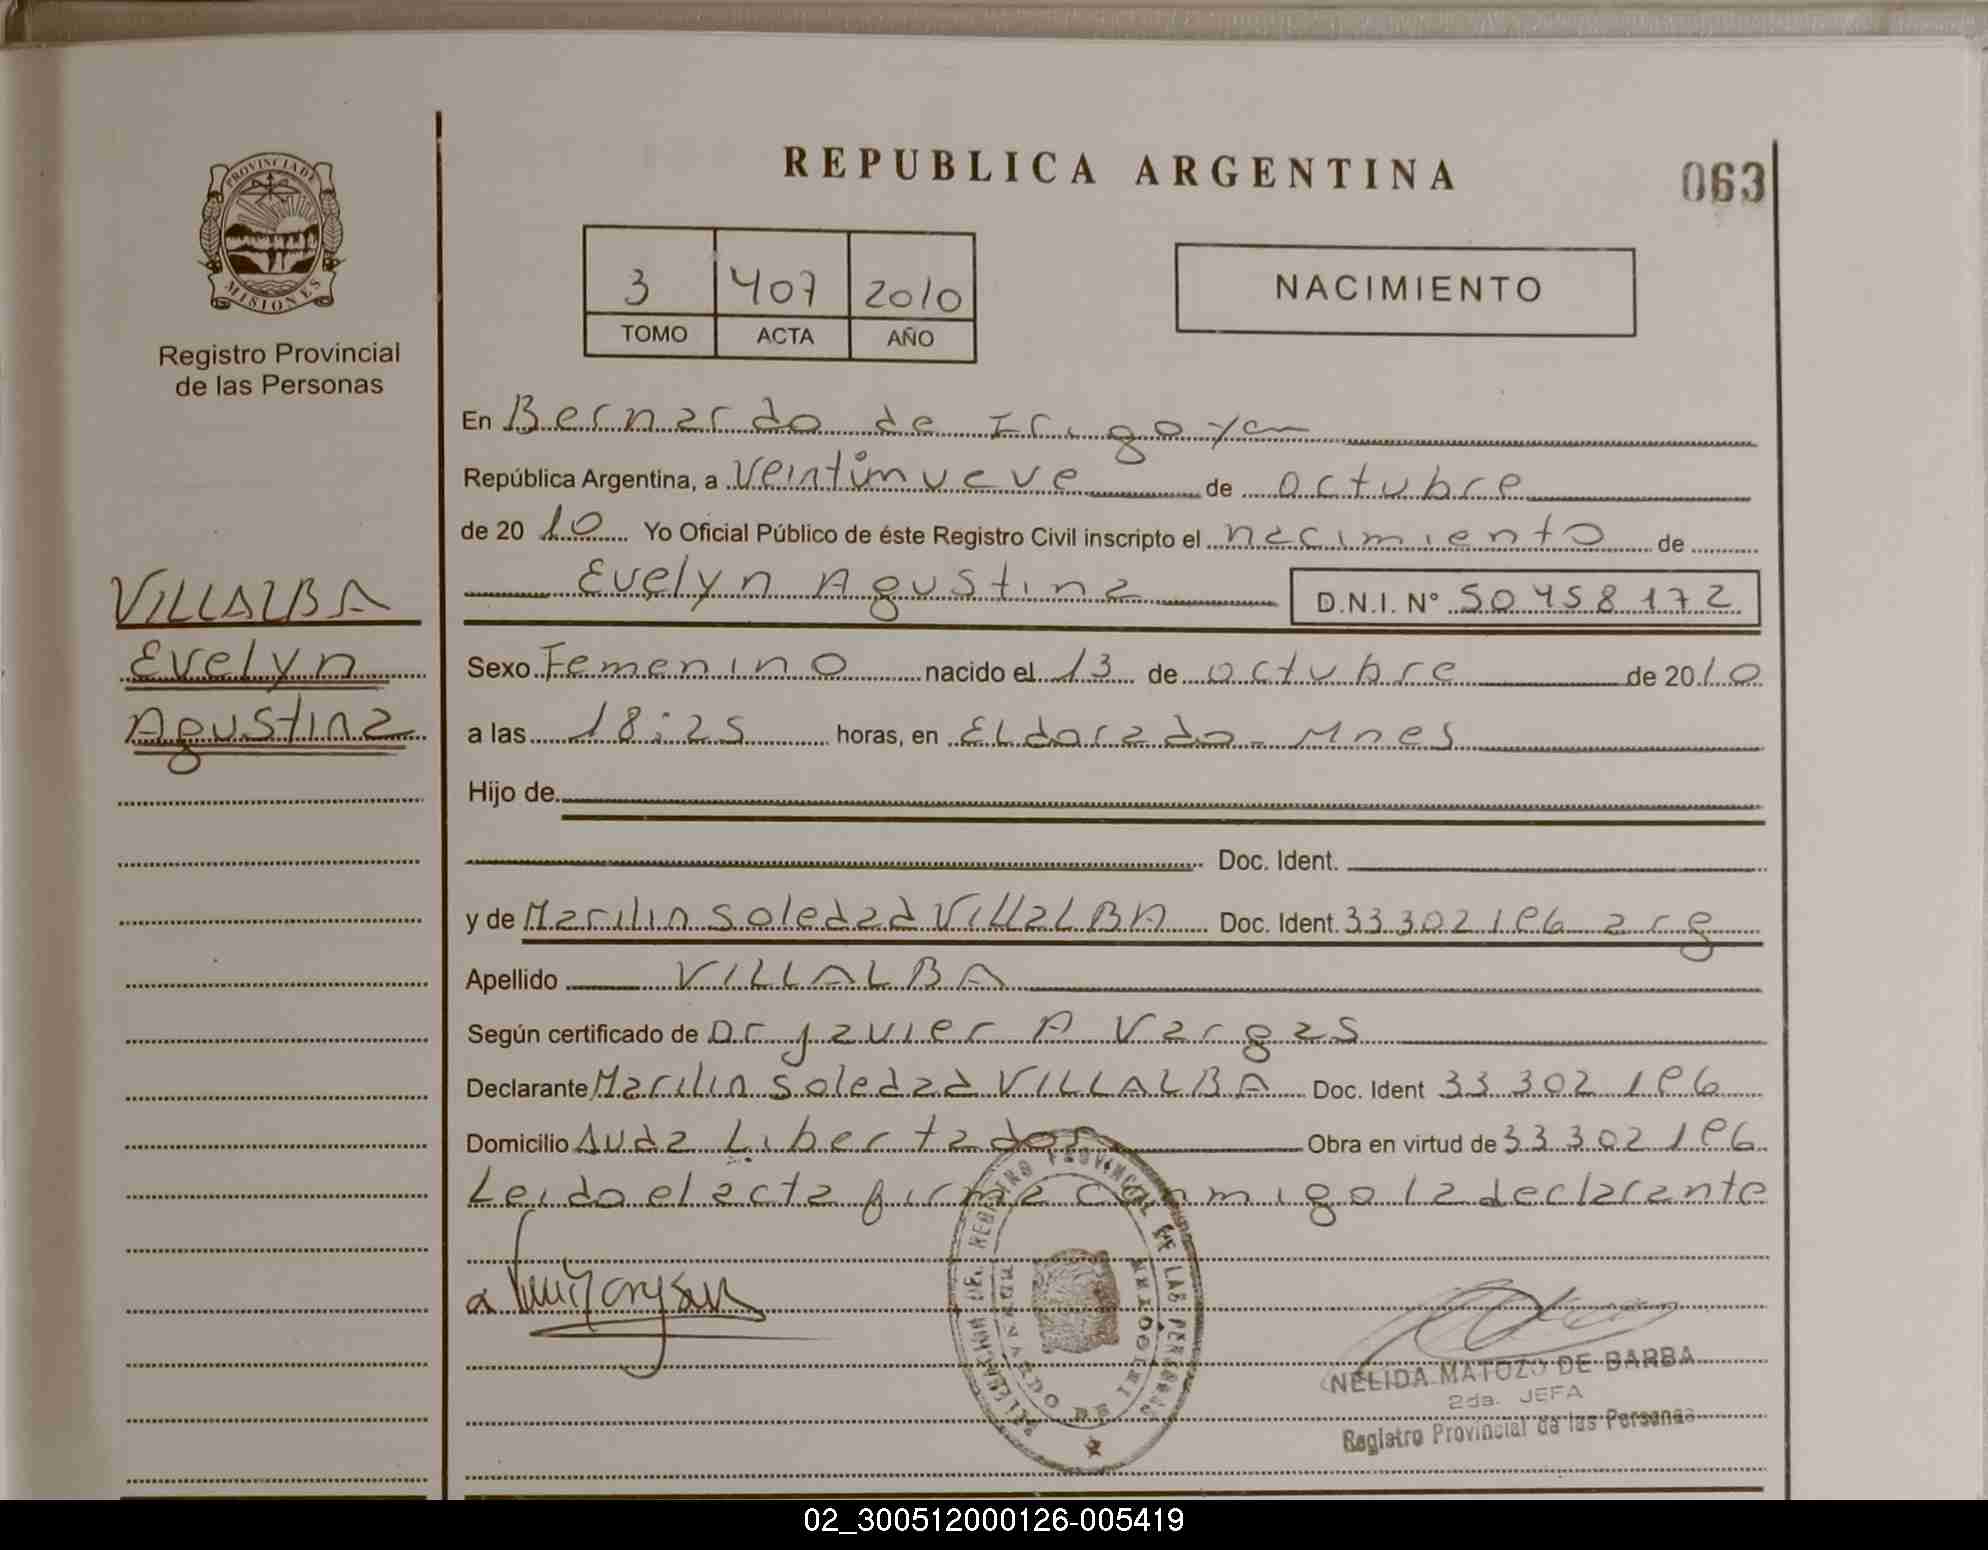 PROVINCIA DE
MISIONES
Registro Provincial
de las Personas
VILLALBA
Evelyn
Agustina
REPUBLICA ARGENTINA
063
3 407 2010
TOMO ACTA AÑO
NACIMIENTO
En Bernardo de Irigoyen
República Argentina, a Veintinueve de octubre
de 2010 Yo Oficial Público de éste Registro Civil inscripto el nacimiento de
Evelyn Agustina D.N.I. N° 50458172
Sexo Femenino nacido el 13 de octubre de 2010
a las 18:25 horas, en Eldorado - Mnes
Hijo de
Doc. Ident.
y de Marilin Soledad VillaLBA Doc. Ident. 33 302 196 arg
Apellido VILLALBA
Según certificado de Dr Javier A Vargas
Declarante Marilin Soledad VILLALBA Doc. Ident 33 302 196
Domicilio Avda Libertador Obra en virtud de 33 302 196
Leido el acta firma conmigo la declarante
REGISTRO PROVINCIAL DE LAS PERSONAS
NELIDA MATOZO DE BARBA
2da. JEFA
Registro Provincial de las Personas
02_300512000126-005419